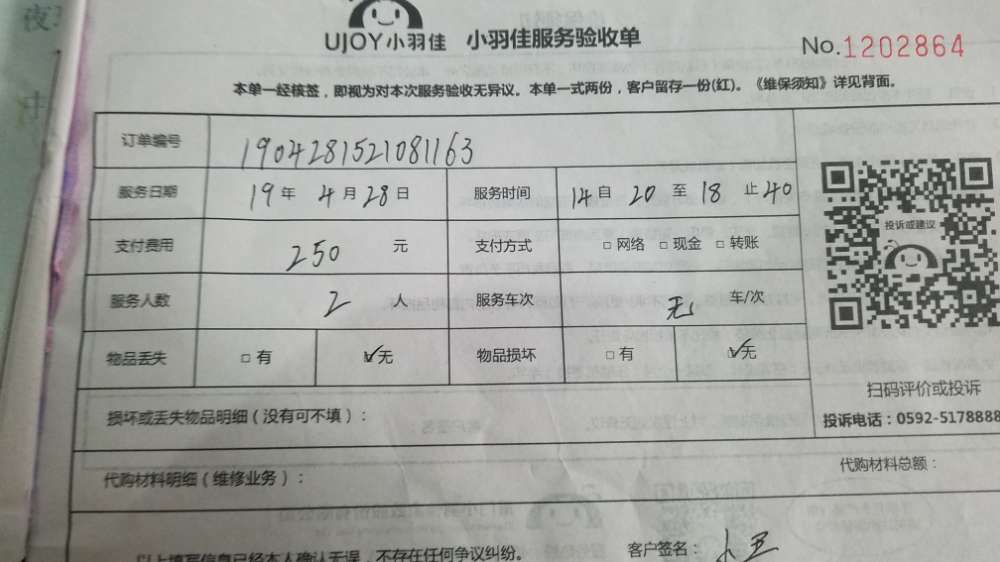 UJOY小羽佳 小羽佳服务验收单
No.1202864
本单一经核签，即视为对本次服务验收无异议。本单一式两份，客户留存一份(红)。《维保须知》详见背面。
订单编号 1904281521081163
服务日期 19年 4月28日 服务时间 14自20至18止40
支付费用 250 元 支付方式 □网络 □现金 □转账
服务人数 2 人 服务车次 无 车/次
物品丢失 □有 ☑无 物品损坏 □有 ☑无
投诉或建议
扫码评价或投诉
投诉电话：0592-5178888
损坏或丢失物品明细（没有可不填）：
代购材料明细（维修业务）： 代购材料总额：
以上填写信息已经本人确认无误，不存在任何争议纠纷。 客户签名：